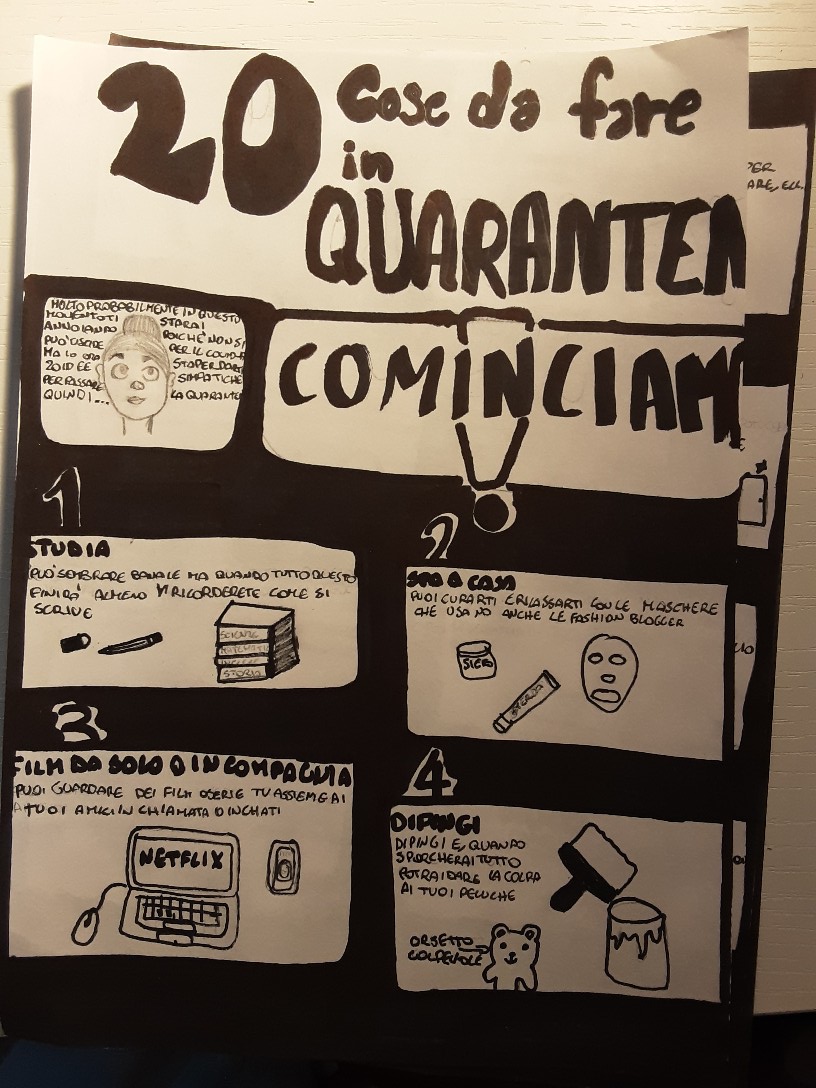 20 Cose da fare
in
QUARANTEN
MOLTO PROBABILMENTE IN QUESTO
MOMENTO TI STARAI
ANNOIANDO POICHÈ NON SI
PUO' USCIRE PER IL COVID
MA IO ORA STO PER DARTI
20 IDEE SIMPATICHE
PER PASSARE LA QUARANTE
QUINDI...
COMINCIAM
!
1
STUDIA
PUO' SEMBRARE BANALE MA QUANDO TUTTO QUESTO
FINIRÀ ALMENO VI RICORDERETE COME SI
SCRIVE
SCIENZE
MATEMATICA
INGLESE
STORIA
2
SPA A CASA
PUOI CURARTI E RILASSARTI CON LE MASCHERE
CHE USANO ANCHE LE FASHION BLOGGER
SIERO
3
FILM DA SOLO O IN COMPAGNIA
PUOI GUARDARE DEI FILM O SERIE TV ASSIEME AI
TUOI AMICI IN CHIAMATA O IN CHAT
NETFLIX
4
DIPINGI
DIPINGI E, QUANDO
SPORCHERAI TUTTO
POTRAI DARE LA COLPA
AI TUOI PELUCHE
ORSETTO
COLPEVOLE